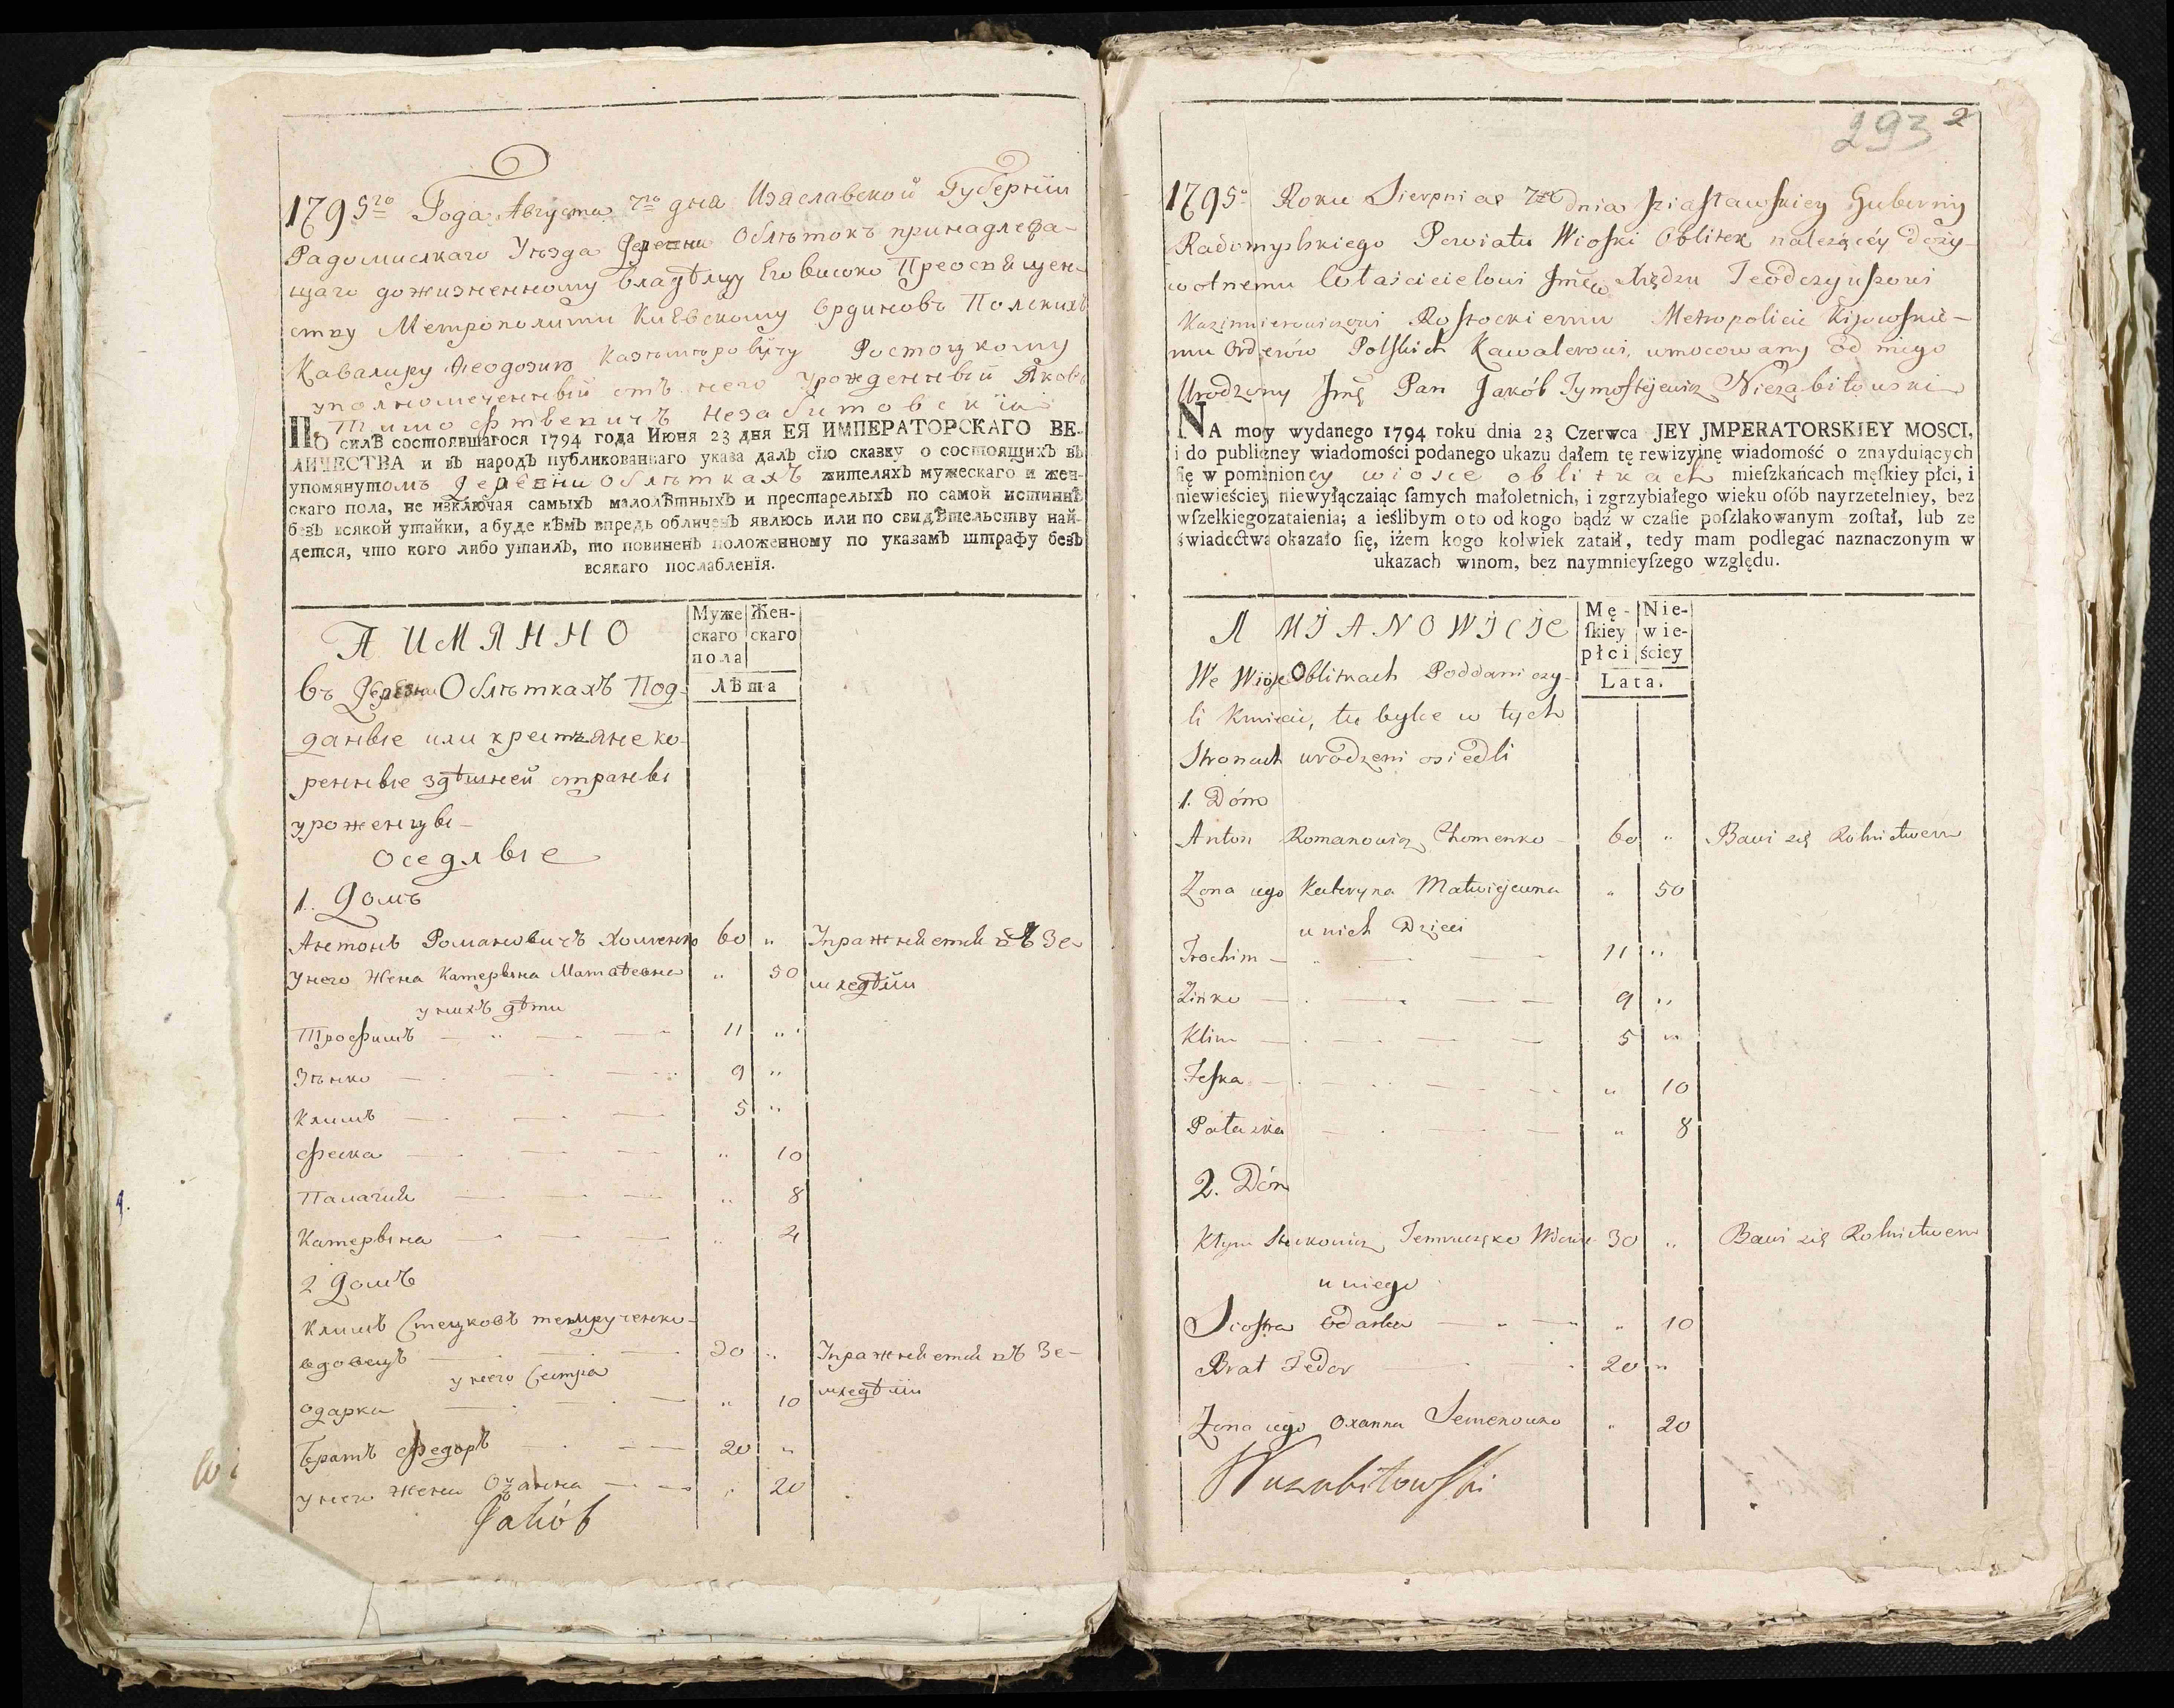 1795го Года Августа 7го дня Изяславской Губернїи
Радомислкаго Уѣзда Деревни Облѣтокъ принадлежа-
щаго дожизненному владѣлцу Его високо Преосвящен-
ству Метрополити Киевскому Ординовъ Полскихъ
Кавалиру Феодозию Казѣмѣровичу Ростоцкому
уполномоченный отъ него Урожденный Яковъ
Тимофѣевичъ Незабитовскїй
ПО силѣ состоявшагося 1794 года Июня 23 дня ЕЯ ИМПЕРАТОРСКАГО ВЕ-
ЛИЧЕСТВА и въ народъ публикованнаго указа далъ сїю сказку о состоящихъ въ
упомянутомъ Деревни Облѣткахъ жителяхъ мужескаго и жен-
скаго пола, не изключая самыхъ малолѣтныхъ и престарелыхъ по самой истиннѣ
безъ всякой утайки, а буде кѣмъ впредь обличенъ явлюсь или по свидѣтельству най-
дется, что кого либо утаилъ, то повиненъ положенному по указамъ штрафу безъ
всякаго послабленїя.
А ИМЯННО
Муже Жен-
скаго скаго
пола
Лѣта
Въ Деревни Облѣткахъ Под-
данные или крестьяне ко-
ренные здѣшней страны
уроженцы
Оседлые
1. Домъ
Антонъ Романовичъ Хоменко 60 „ Упражняется въ Зе-
Унего Жена Катерына Матвѣевна „ 50 мледѣлїи
у нихъ дѣти
Трофимъ 11 „
Зѣнко 9 „
Климъ 5 „
Феска „ 10
Палагия „ 8
Катерына „ 4
2 Домъ
Климъ Стецковъ темрученко
вдовецъ 30 „ Упражняется въ Зе-
у него Сестра мледѣлїи
одарка „ 10
братъ Федоръ 20 „
у него жена Оxанна „ 20
Jakób
293 2
1795о Roku Sierpnia 7go dnia Iziasławskiey Gubernij
Radomyslskiego Powiatu Wioski Oblitek należącéy doży-
wotnemu Właścicielowi Jmć Xiędzu Teodozyuszowi
Kazimierowiczowi Rostockiemu Metropolicie Kijowskie-
mu Orderów Polskich Kawalerowi, umocowany od niego
Urodzony Jmć Pan Jakób Tymoftijewicz Niezabitowski
NA moy wydanego 1794 roku dnia 23 Czerwca JEY JMPERATORSKIEY MOSCI,
i do publiczney wiadomości podanego ukazu dałem tę rewizyinę wiadomość o znayduiących
się w pomienioney wiosce oblitkach mieſzkańcach męſkiey płci, i
niewieściey niewyłączaiąc ſamych małoletnich, i zgrzybiałego wieku oſób nayrzetelniey, bez
wſzelkiego zataienia; a ieślibym o to od kogo bądź w czaſie poſzlakowanym zoſtał, lub ze
świadectwa okazało ſię, iżem kogo kolwiek zataił, tedy mam podlegać naznaczonym w
ukazach winom, bez naymnieyſzego względu.
A MJANOWJCJE
Mę- Nie-
ſkiey wie-
płci ściey
Lata.
We Wiosce Oblitkach Poddani czy-
li Kmiecie, tu bylce w tych
Stronach urodzeni osiedli
1. Dóm
Anton Romanowicz Chomenko 60 „ Bawi się Rolnictwem
Zona iego Kateryna Matwiejewna „ 50
u nich Dzieci
Trochim 11 „
Zińko 9 „
Klim 5 „
Feska „ 10
Pałazka „ 8
2. Dóm
Kłym Steckowicz Temruczęko Wdowiec 30 „ Bawi się Rolnictwem
u niego
Siostra Odarka „ 10
Brat Fedor 20 „
Zona iego Oxanna Semenowna „ 20
Niezabitowski